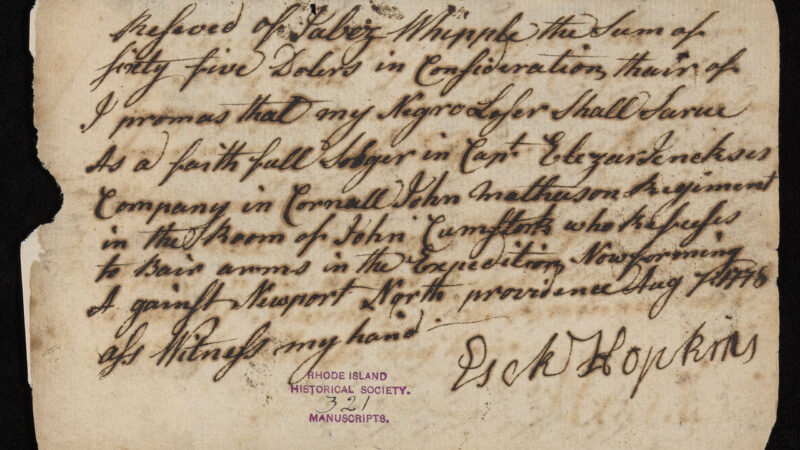 Reseved of Jabez Whipple the Sum of
sixty five Dolers in Consideration thair of
I promas that my Negro Loser Shall Sarve
As a faith full Solger in Capt Elezar Jenckses
Company in Cornall John Mathason Regiment
in the Room of John Cumstock who Refuses
to Bair arms in the Expedition Now forming
A gainst Newport North providence Aug 7 1778
ass Witness my hand
Esek Hopkins
RHODE ISLAND
HISTORICAL SOCIETY.
321
MANUSCRIPTS.